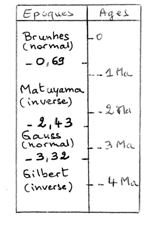 Epoques Ages
Brunhes 0
(normal)
- 0,69
1 Ma
Matuyama
(inverse)
2 Ma
- 2,43
Gauss
(normal)
3 Ma
- 3,32
Gilbert
(inverse)
4 Ma